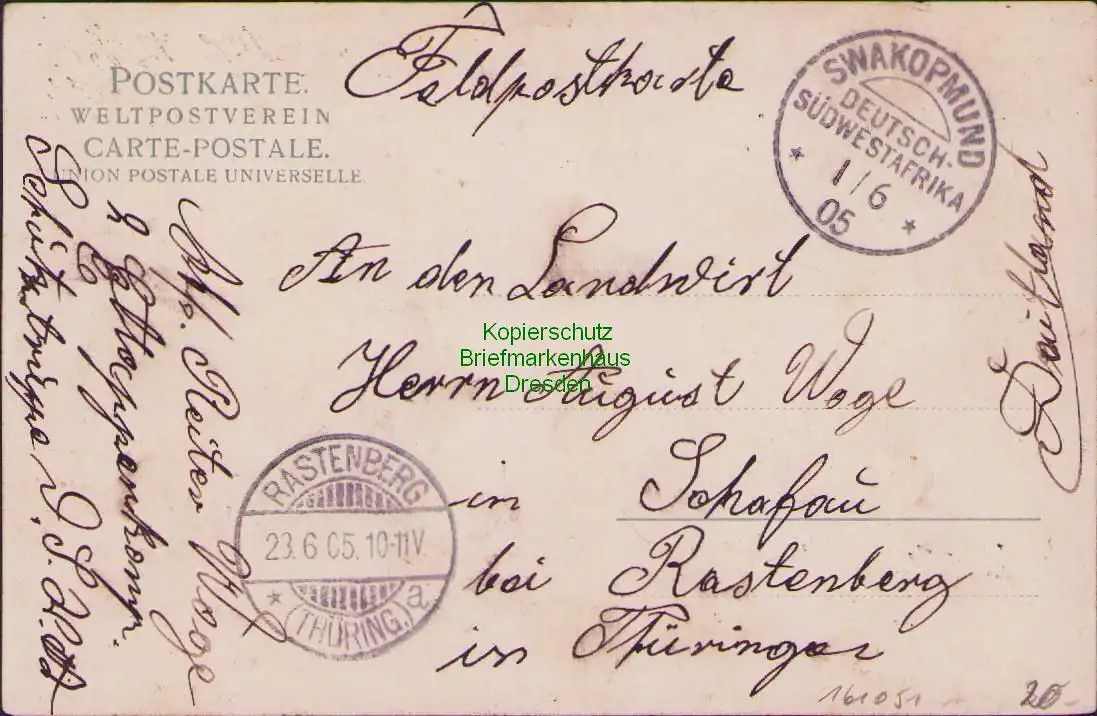 Feldpostkarte
POSTKARTE.
WELTPOSTVEREIN
CARTE-POSTALE.
UNION POSTALE UNIVERSELLE
SWAKOPMUND
DEUTSCH-
SÜDWESTAFRIKA
* 1/6 *
05
An den Landwirt
Herrn August Woge
in Schafau
bei Rastenberg
in Thüringen
Deutland
Kopierschutz
Briefmarkenhaus
Dresden
RASTENBERG
23.6.05.10-11V.
* (THÜRING.) a
Abs. Reiter Woge
2 Ettappenkomp.
Schutztruppe D. S. W.
161051
20-